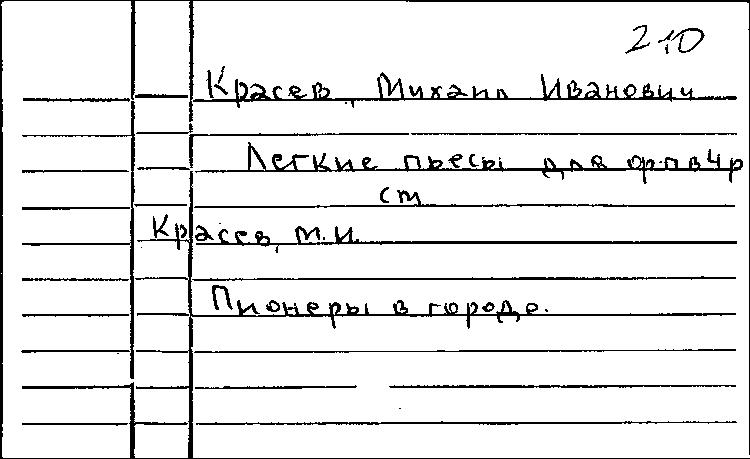 210
Красев, Михаил Иванович
Легкие пьесы для фп в 4 р
ст
Красев, М.И.
Пионеры в городе.